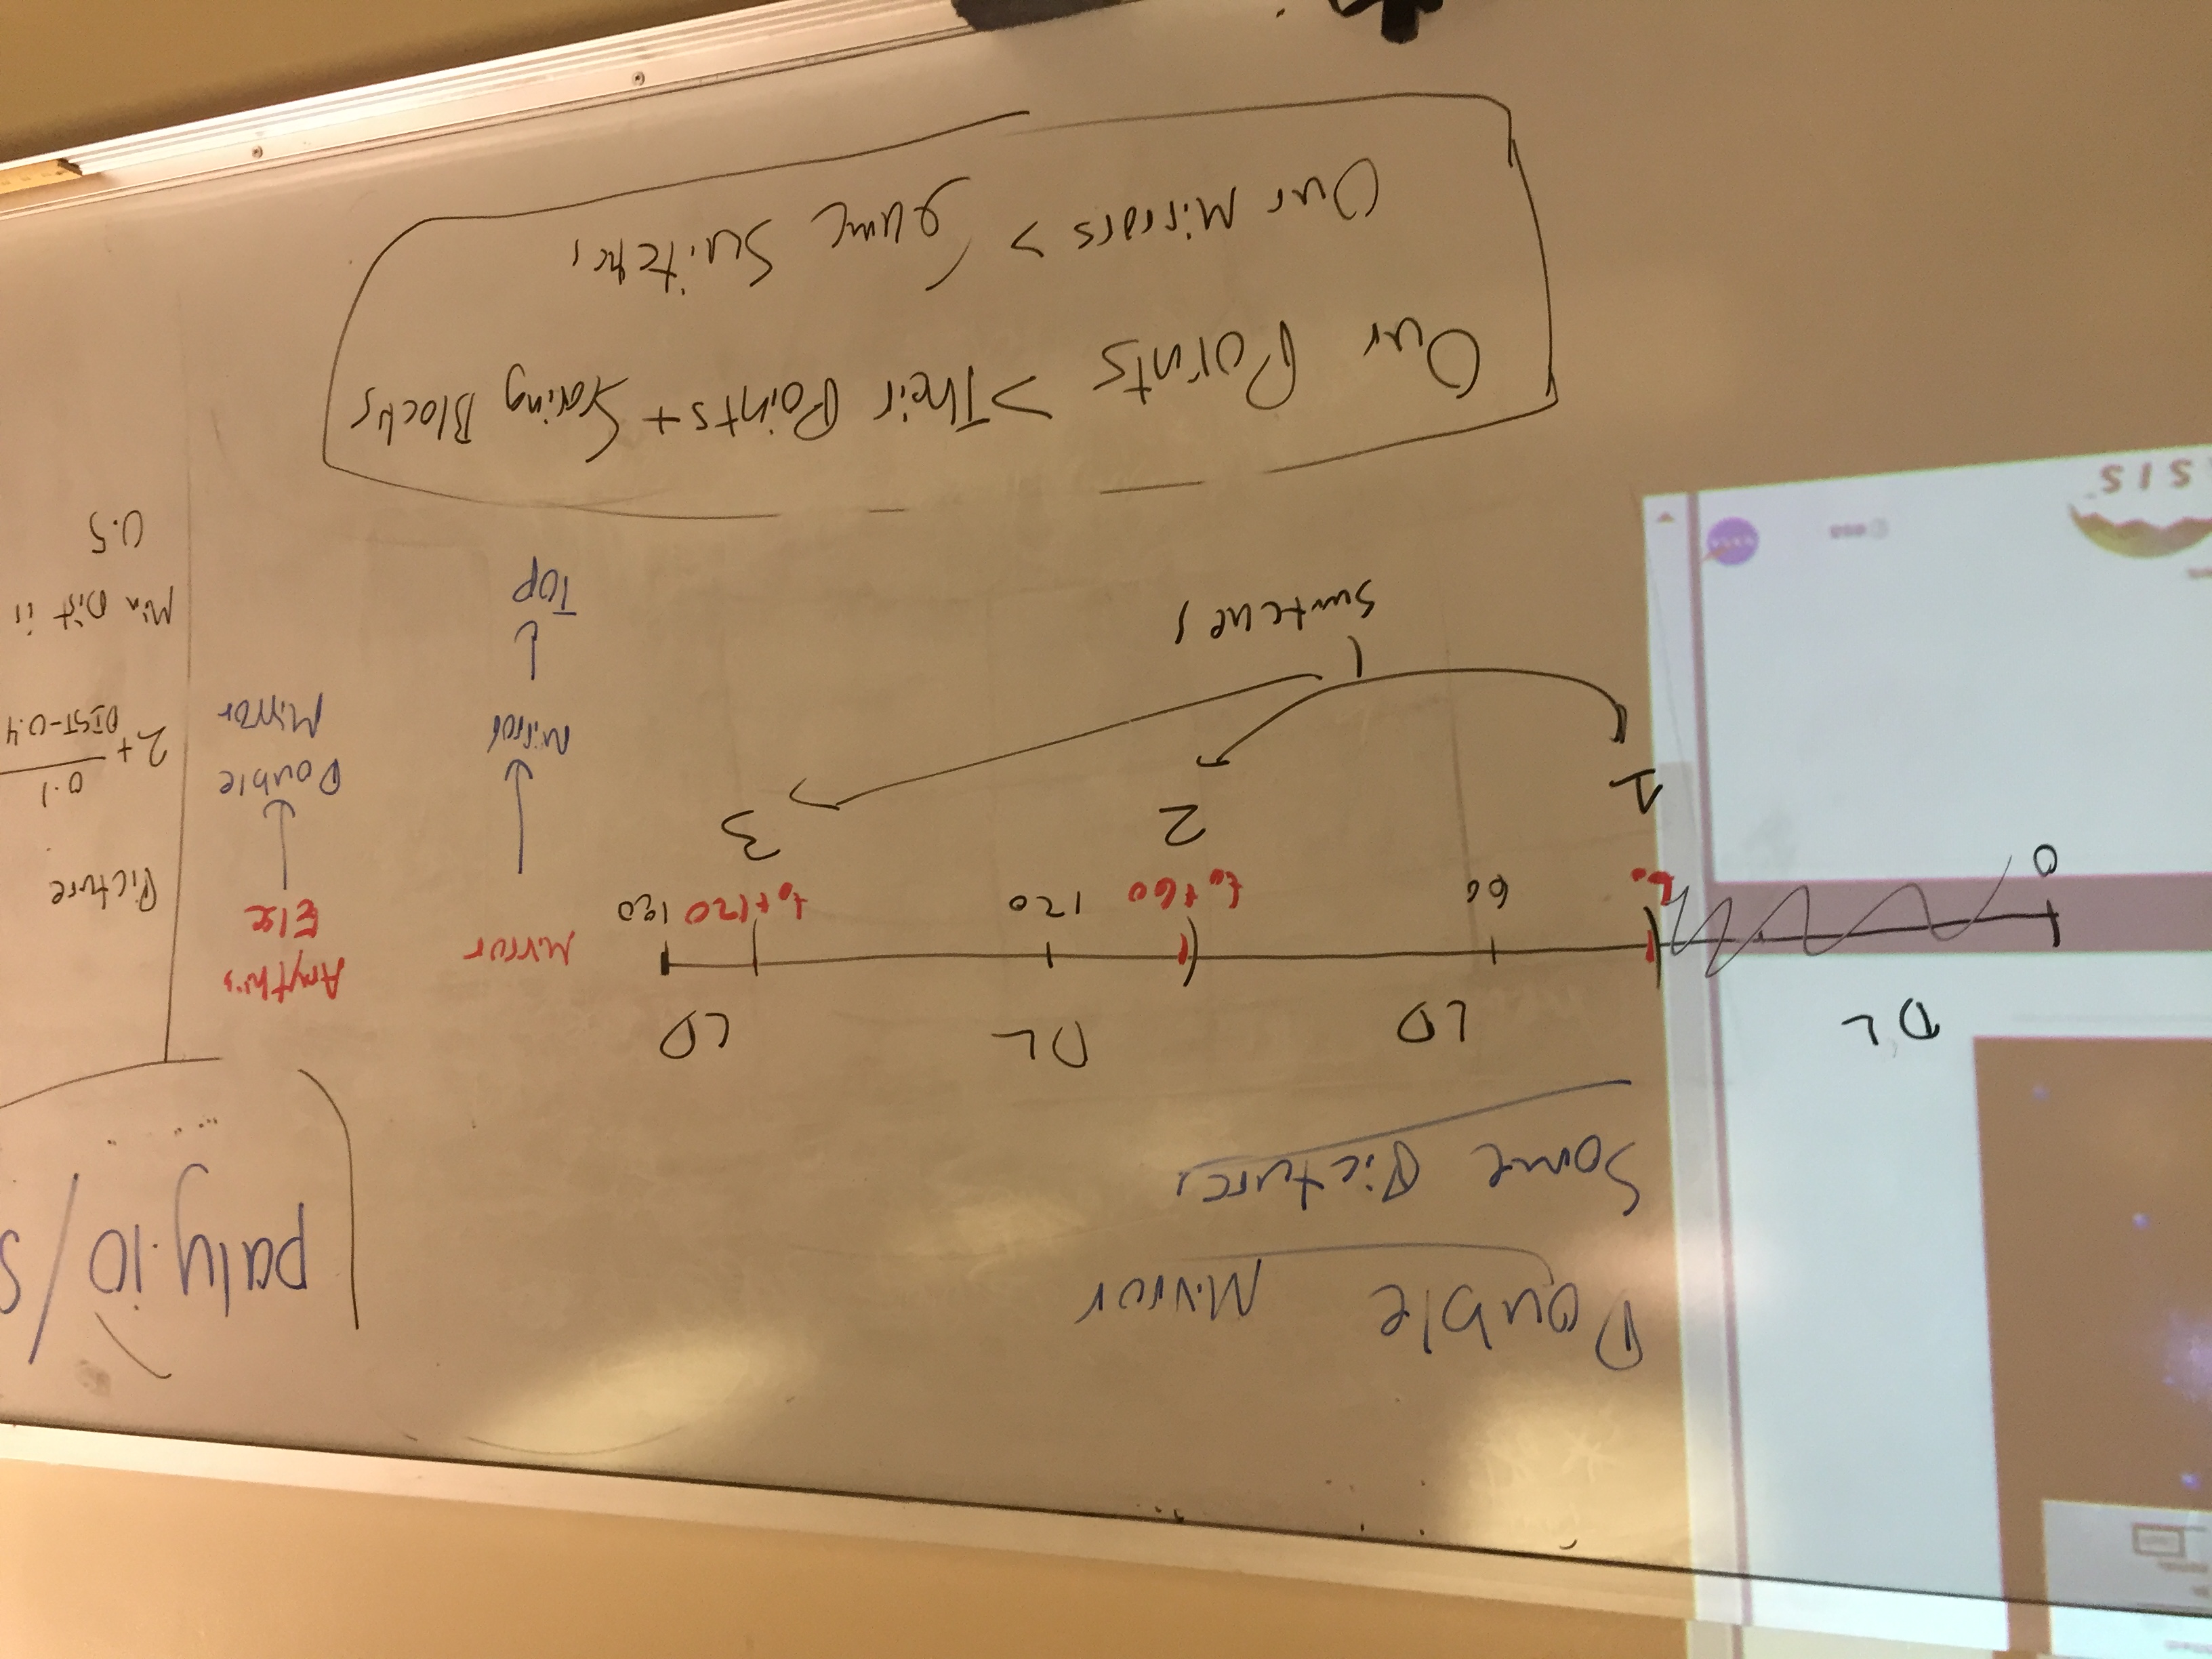 Double Mirror
Some Pictures
paly.io/S
DL LD DL LD
0 t₀ 60 t₀+60 120 t₀+120 180
1 2 3
Switches
Mirror
Mirror
Top
Anything
Else
Double
Mirror
Picture
2+ 0.1
DIST-0.4
Min Dist is
0.5
Our Points > Their Points + Scoring Blocks
Our Mirrors > Game Switches
esa
NASA
SIS